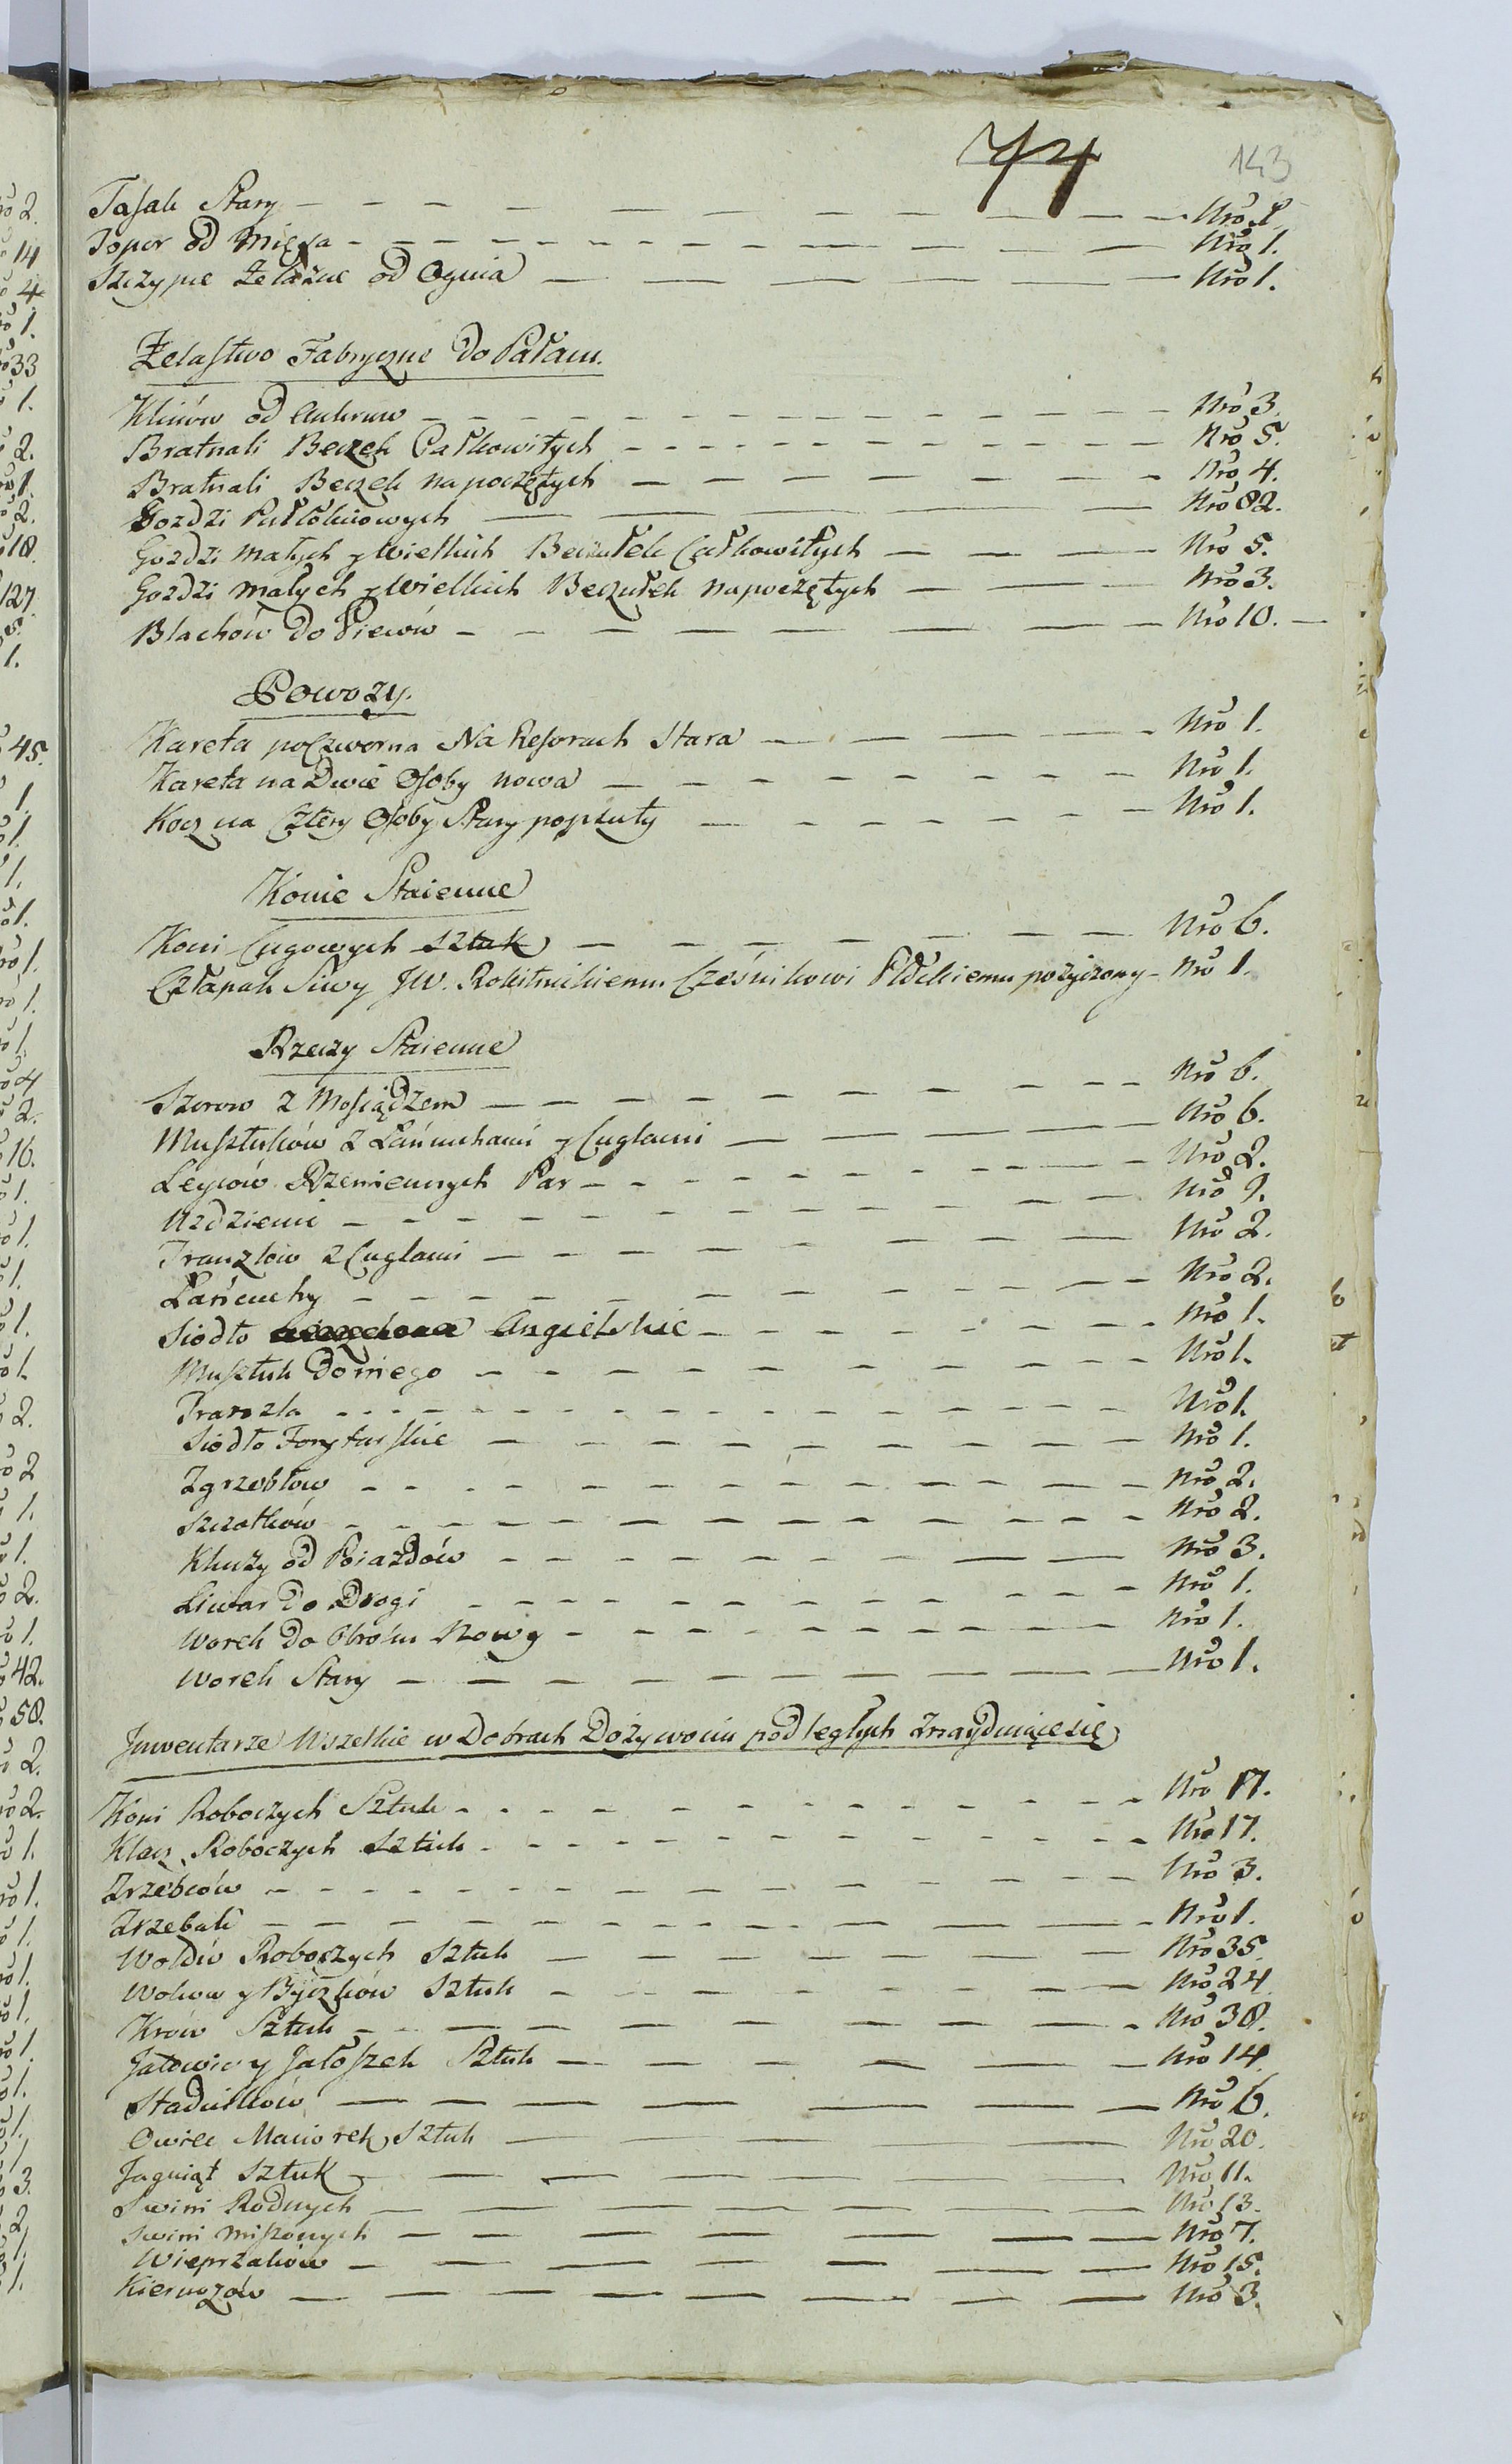 74
143
Tasak Stary — Nro 1.
Topor od Mięsa — Nro 1.
Szczypce Żelazne od Ognia — Nro 1.
Żelastwo Fabryczne do Pałacu.
Klinów od — Nro 3.
Bratnali Beczek Całkowitych — Nro 5.
Bratnali Beczek napoczętych — Nro 4.
Gozdzi — Nro 82.
Gozdzi małych y Wielkich Beczułek Całkowitych — Nro 5.
Gozdzi małych y Wielkich Beczułek napoczętych — Nro 3.
Blachów do Piecow — Nro 10.
Powozy.
Kareta poczworna Na Resorach Stara — Nro 1.
Kareta na Dwie Osoby nowa — Nro 1.
Kocz na Cztery Osoby Stary popsuty — Nro 1.
Konie Staienne
Koni Cugowych Sztuk — Nro 6.
Człapak Siwy JW. Rokitnickiemu Cześnikowi Płckiemu pożyczony — Nro 1.
Rzeczy Staienne
Szorow z Mosiądzem — Nro 6.
Musztuków z Łańcuchami y Cuglami — Nro 6.
Leycow Rzemiennych Par — Nro 2.
Uzdzieni — Nro 9.
Tranzlow z Cuglami — Nro 2.
Łańcuchy — Nro 2.
Siodło Angielskie — Nro 1.
Musztuk Do niego — Nro 1.
Nro 1.
Siodło Forytarskie — Nro 1.
Zgrzebłow — Nro 2.
Szczotków — Nro 2.
Kluczy od Poiazdów — Nro 3.
Liwar Do Drogi — Nro 1.
Worek Do Obroku Nowy — Nro 1.
Worek Stary — Nro 1.
Inwentarze Wszelkie w Dobrach Dożywociu podległych Znayduiące się
Koni Roboczych Sztuk — Nro 17.
Klacz Roboczych Sztuk — Nro 17.
Zrzebców — Nro 3.
Zrzebak — Nro 1.
Wołów Roboczych Sztuk — Nro 35.
Wolcow y Byczków Sztuk — Nro 24.
Krów Sztuk — Nro 38.
Jałowic y Jałoszek Sztuk — Nro 14.
Stadników — Nro 6.
Owiec Maciorek Sztuk — Nro 20.
Jagniąt Sztuk — Nro 11.
Swini Rodnych — Nro 13.
Swini Miszonych — Nro 7.
Wieprzaków — Nro 15.
Kiernozów — Nro 3.